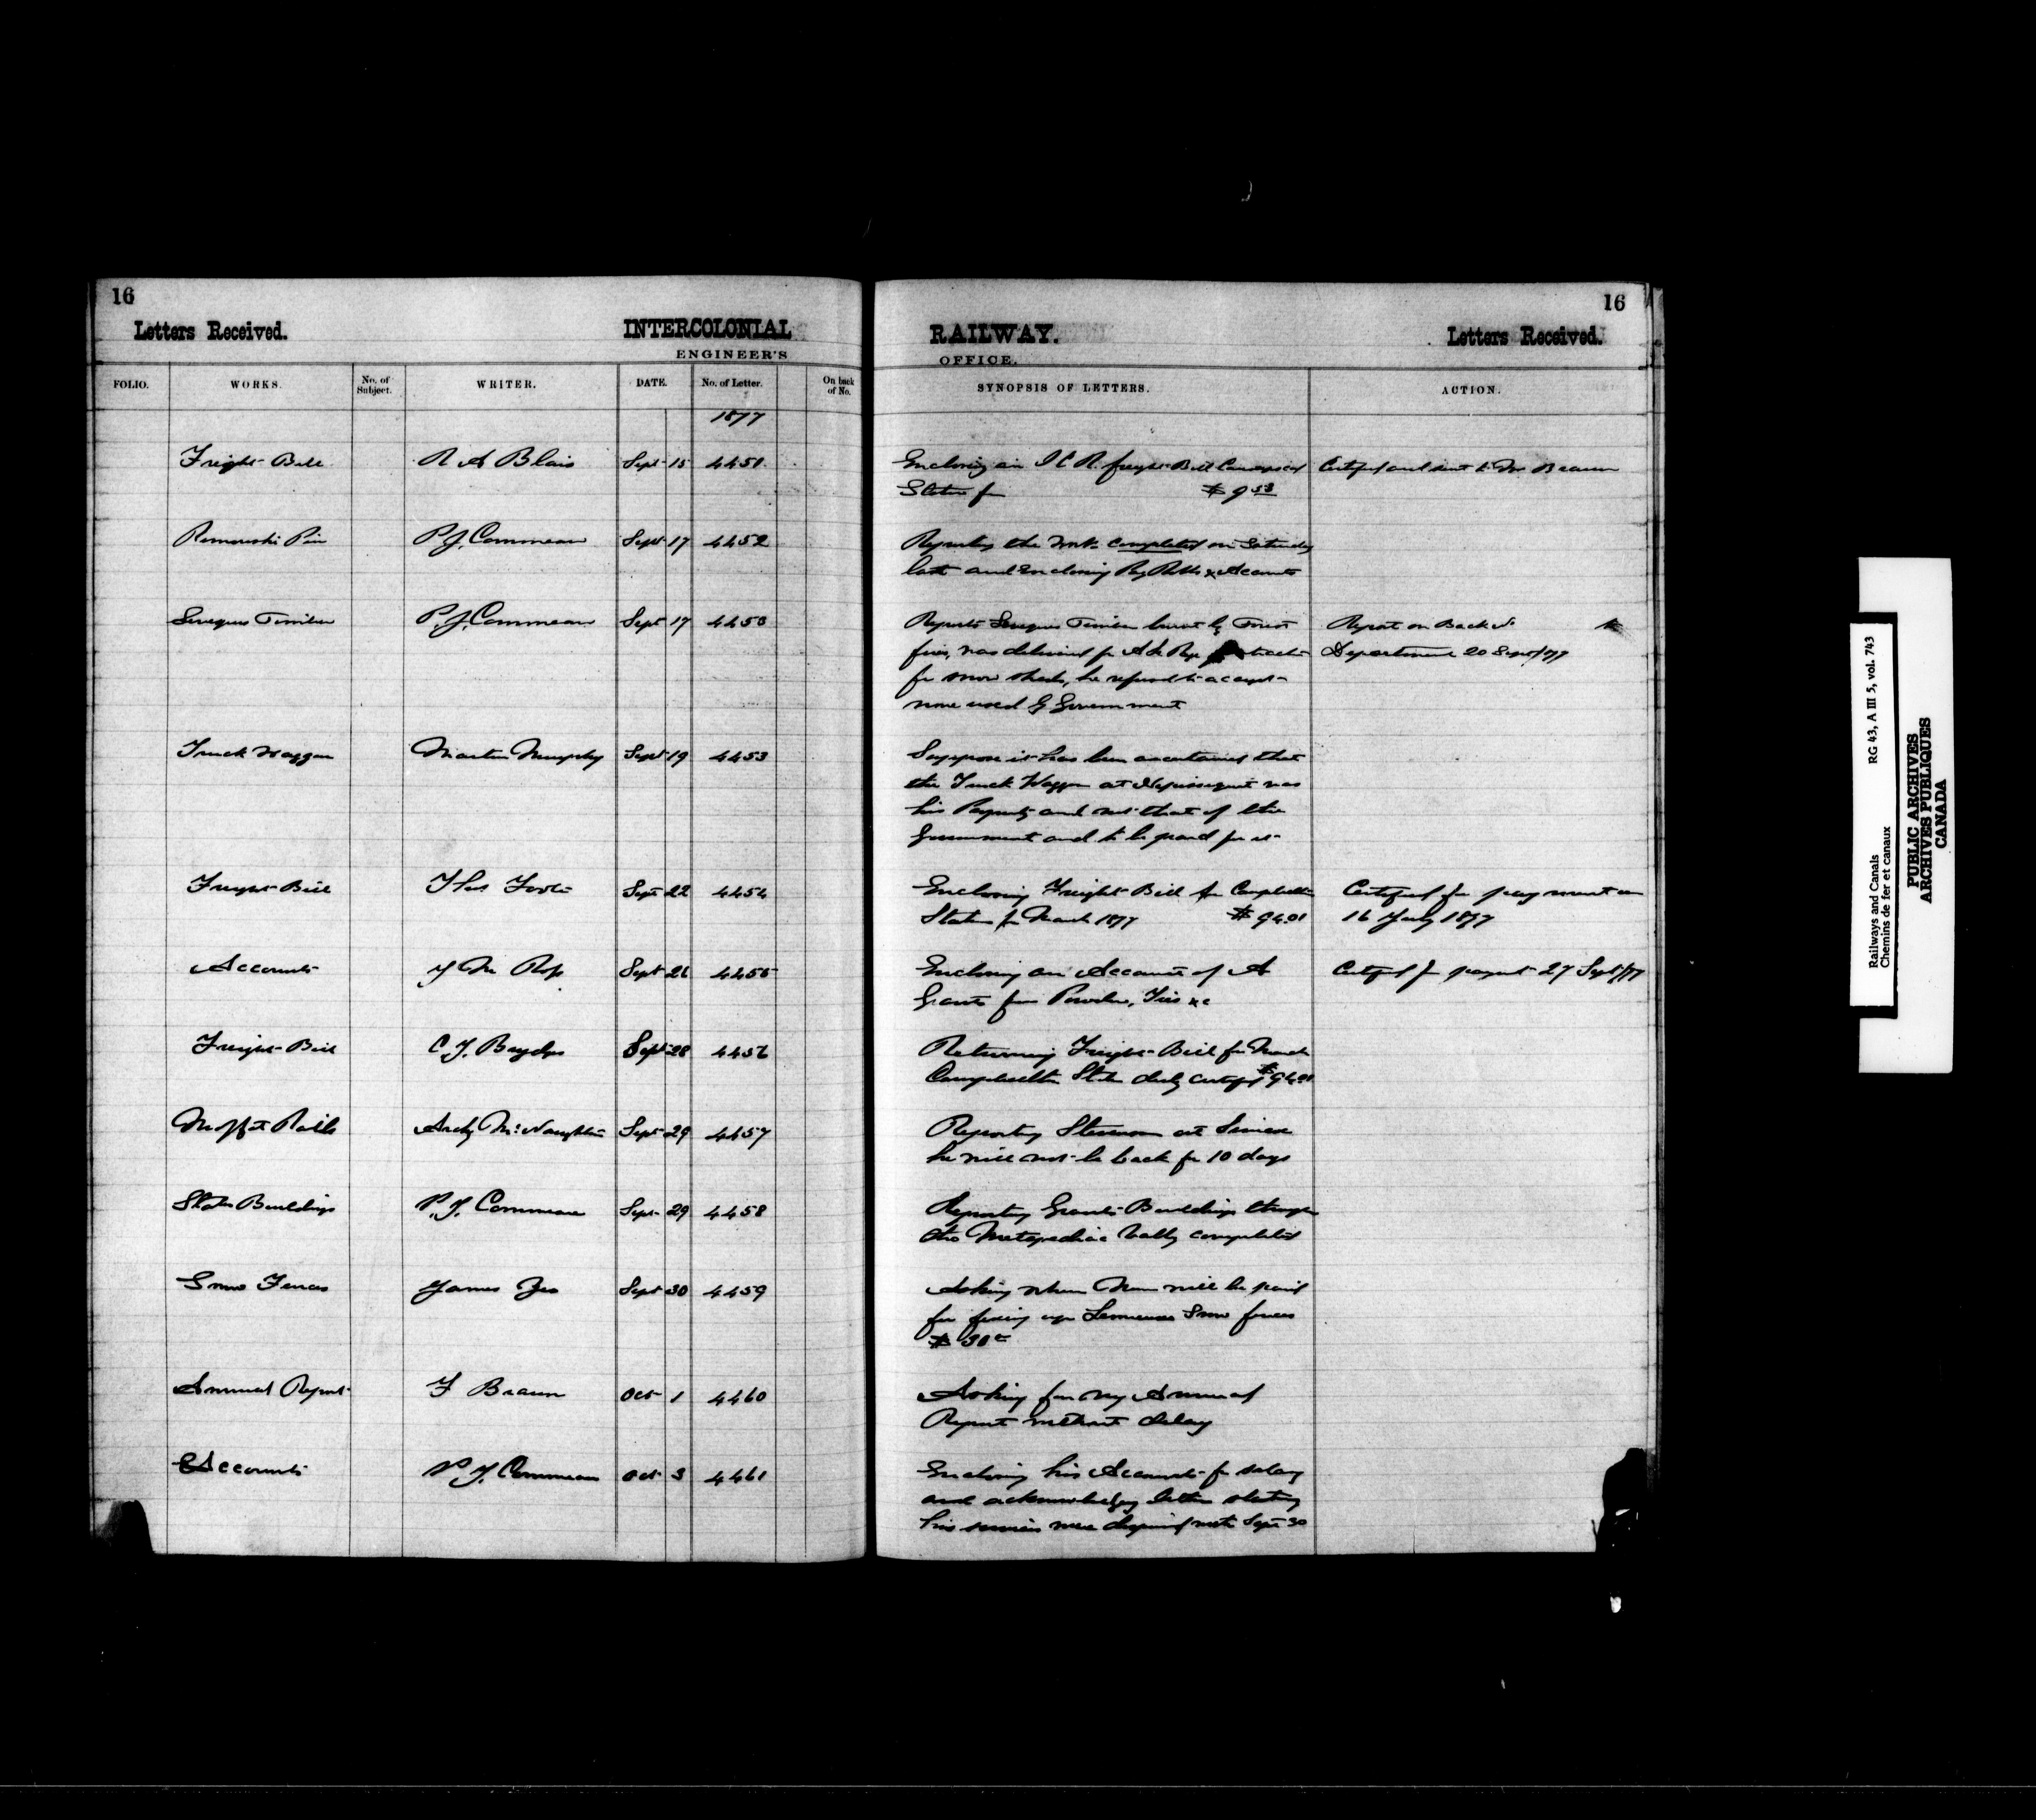 16
Letters Received.
INTERCOLONIAL
ENGINEER'S
FOLIO. WORKS. No. of Subject. WRITER. DATE. No. of Letter. On back of No.
1877
Freight Bill R A Blais Sept 15 4451
Rimouski Pier P.J. Commeau Sept 17 4452
Timber P.J. Commeau Sept 17 4450
Truck Waggon Martin Murphy Sept 19 4453
Freight Bill Thos Foote Sept 22 4454
Accounts J M Ross Sept 26 4455
Freight Bill C.J. Brydges Sept 28 4456
Moffat Rails Archy McNaughton Sept 29 4457
Station Buildings P.J. Commeau Sept 29 4458
Snow Fences James Sept 30 4459
Annual Report F Braun Oct 1 4460
Accounts P J Commeau Oct 3 4461
16
RAILWAY.
Letters Received.
OFFICE.
SYNOPSIS OF LETTERS. ACTION.
Enclosing an I C R freight Bill Certified and sent to Mr Braun
Station for $9 53
Reporting the work completed on Saturday
last and Enclosing Pay Rolls & Accounts
Reports Timber burnt by Forest Report on Back
fires, was delivered for Department 20 Sept/77
for snow sheds, he refused to accept
none used by Government
Suppose it has been ascertained that
the Truck Waggon at Nepissiguit was
his Property and not that of the
Government and to be paid for it
Enclosing Freight Bill for Campbellton Certified for payment on
Station for March 1877 $94.01 16 July 1877
Enclosing an Account of A Certified for payment 27 Sept/77
Grants for Powder, &c
Returning Freight Bill for March
Campbellton Station duly certified $94.01
Reporting Stevenson at
he will not be back for 10 days
Reporting Grants Buildings through
the Metapediac Vally completed
Asking when Men will be paid
for fixing up Snow fences
$30
Asking for my Annual
Report without delay
Enclosing his Accounts for salary
and acknowledging letter stating
his services were dispensed with Sept 30
Railways and Canals RG 43, A III 5, vol. 743
Chemins de fer et canaux
PUBLIC ARCHIVES
ARCHIVES PUBLIQUES
CANADA